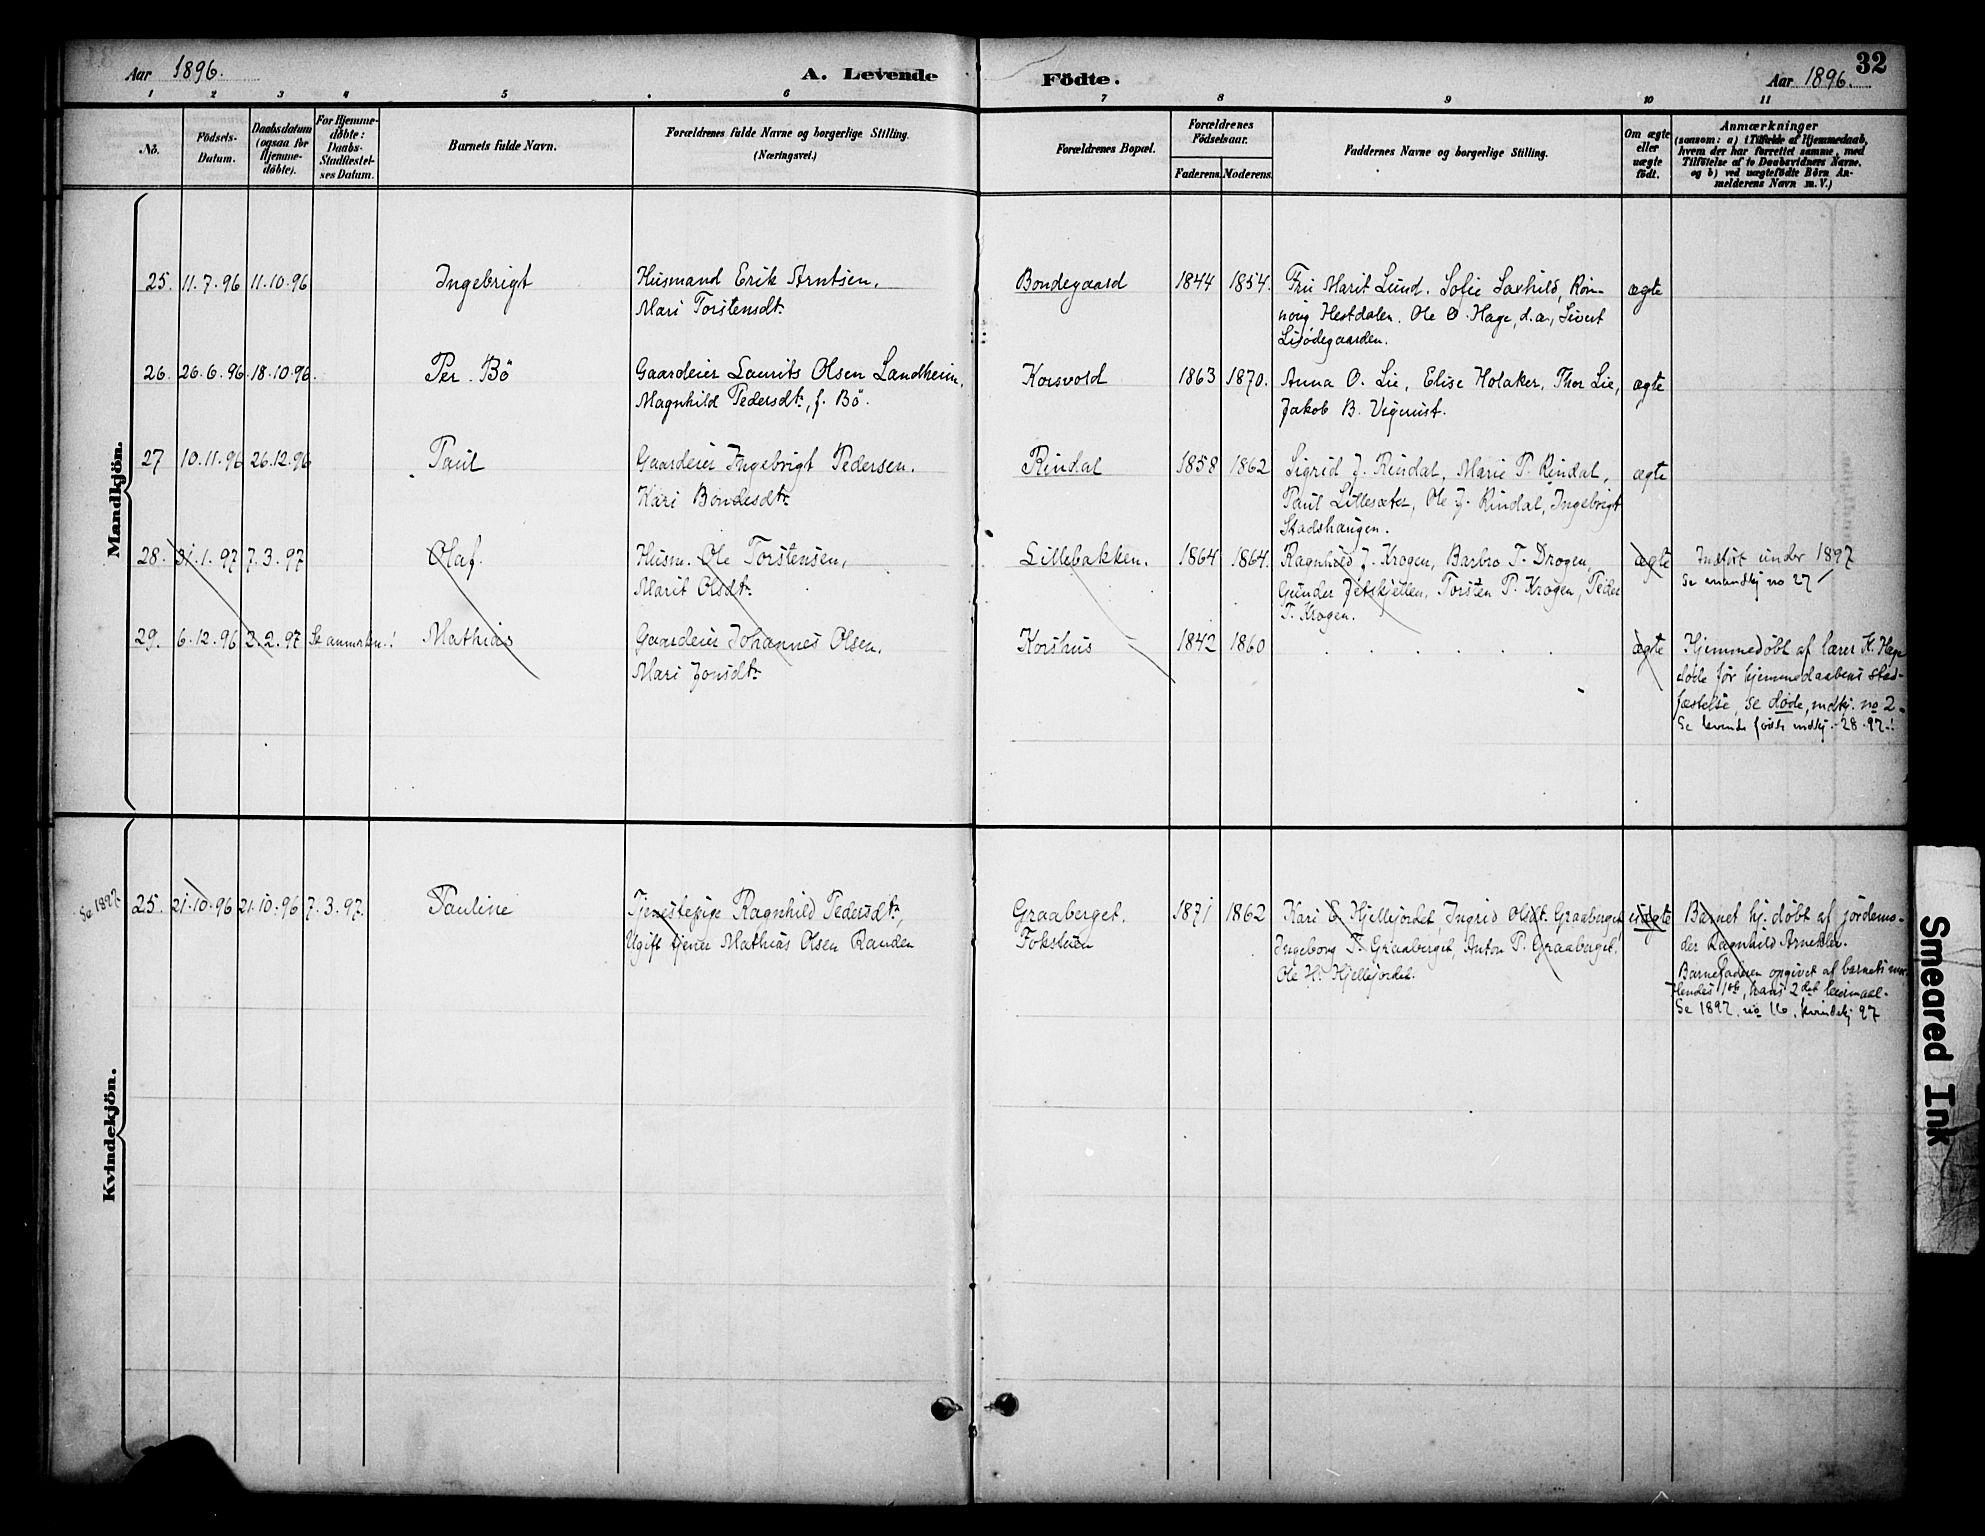 Aar 1896.
A. Levende
Födte.
Aar 1896.
32
1 2 3 4 5 6 7 8 9 10 11
No.
Födsels-
Datum.
Daabsdatum
(ogsaa for
Hjemme-
döbte).
For Hjemme-
döbte:
Daabs-
Stadfæstel-
ses Datum.
Barnets fulde Navn.
Forældrenes fulde Navne og borgerlige Stilling.
(Næringsvei.)
Forældrenes Bopæl.
Forældrenes
Födselsaar.
Faderens. Moderens.
Faddernes Navne og borgerlige Stilling.
Om ægte
eller
uægte
födt.
Anmærkninger
(saasom: a) i Tilfælde af Hjemmedaab,
hvem der har forrettet samme, med
Tilföielse af to Daabsvidners Navne,
og b) ved uægtefödte Börn An-
melderens Navn m. V.)
Mandkjön.
25. 11.7.96 11.10.96 Ingebrigt
Husmand Erik Arntsen,
Mari Torstensdtr.
Bondegaard 1844 1854.
Fru Marit Lund. Sofie Saxhild, Ron-
noug Hestdalen. Ole O. Hage, d.æ, Sivert
Lisödegaarden.
ægte
26. 26.6.96. 18.10.96. Per Bö
Gaardeier Laurits Olsen Landheim,
Magnhild Pedersdtr, f. Bö.
Korsvold 1863 1870.
Anna O. Lie, Elise Holaker, Thor Lie,
Jakob B. Vigerust.
ægte
27 10.11.96 26.12.96 Paul
Gaardeier Ingebrigt Pedersen.
Kari Bondesdtr.
Rindal 1858 1862
Sigrid J. Rindal, Marie P. Rindal,
Paul Lillesæter, Ole J. Rindal, Ingebrigt
Stadshaugen.
ægte
28. 31.1.97 7.3.97 Olaf.
Husm. Ole Torstensen,
Marit Olsdtr.
Lillebakken. 1864 1864.
Ragnhild J. Krogen, Barbro T. Drogen,
Gunder Jetskjellen, Torsten P. Krogen, Peder
T. Krogen.
ægte
Indført under 1897
Se mandkj no 27
29. 6.12.96 2.2.97 Se anmerkn.! Mathias
Gaardeier Johannes Olsen.
Mari Jonsdtr.
Korshus 1842 1860
ægte
Hjemmedöbt af lærer H. Hage
döde før hjemmedaabens stad-
fæstelse, se döde, mdkj. no 2.
Se levende fødte mdkj. 28.97.!
Kvindekjön.
Se 1897.
25. 21.10.96 21.10.96 7.3.97. Pauline
Tjenestepige Ragnhild Pedersdtr,
Ugift tjener Mathias Olsen Randen
Graaberget.
Fokstuen
1871 1862
Kari O. Hjellejordet, Ingrid Olsdt. Graaberget,
Ingeborg T. Graaberget, Anton P. Graaberget,
Ole H. Hjellejordet.
uægte
Barnet hj. döbt af jordemo-
der Ragnhild
Barnefaderen opgivet af barnets mor.
Hendes 1ste, hans 2det leiermaal.
Se 1897. no 16, kvindekj 97
Smeared Ink